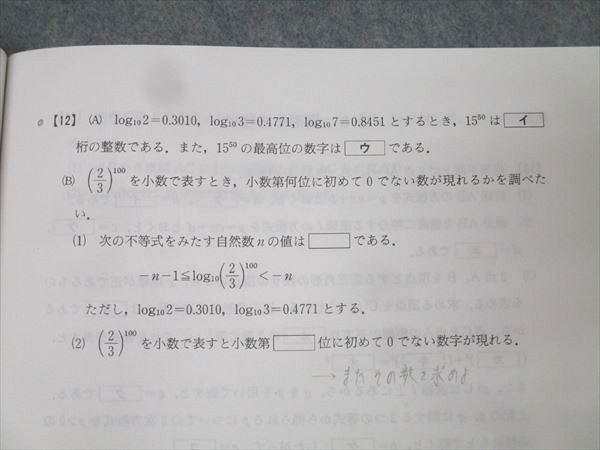 【12】 (A) log₁₀2=0.3010, log₁₀3=0.4771, log₁₀7=0.8451 とするとき, 15⁵⁰ は イ
桁の整数である. また, 15⁵⁰ の最高位の数字は ウ である.
(B) (2/3)¹⁰⁰ を小数で表すとき, 小数第何位に初めて 0 でない数が現れるかを調べた
い.
(1) 次の不等式をみたす自然数 n の値は である.
−n−1≦log₁₀(2/3)¹⁰⁰<−n
ただし, log₁₀2=0.3010, log₁₀3=0.4771 とする.
(2) (2/3)¹⁰⁰ を小数で表すと小数第 位に初めて 0 でない数字が現れる.
→ またその数を求めよ